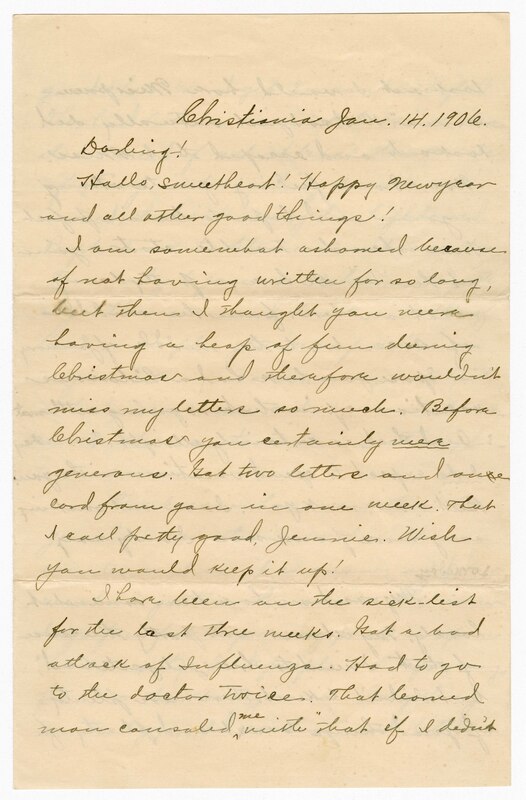 Christiania Jan. 14. 1906.
Darling!
Hallo, sweetheart! Happy newyear
and all other good things!
I am somewhat ashamed because
of not having written for so long,
but then I thought you were
having a heap of fun during
Christmas and therefore wouldn't
miss my letters so much. Before
Christmas you certainly were
generous. Got two letters and one
card from you in one week. That
I call pretty good, Jennie. Wish
you would keep it up!
I have been on the sick-list
for the last three weeks. Got a bad
attack of Influenza. Had to go
to the doctor twice. That learned
man consoled me with "that if I didn't